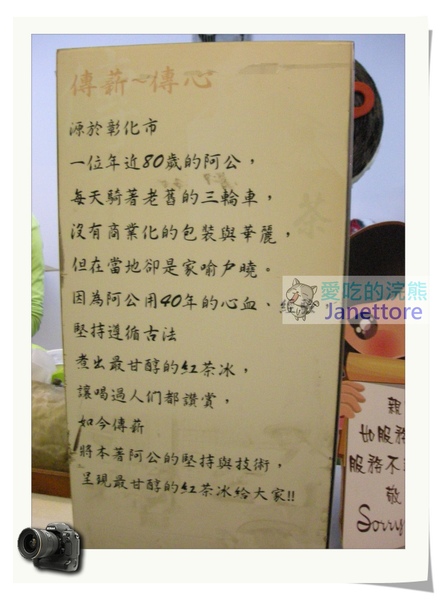 傳薪~傳心
源於彰化市
一位年近80歲的阿公，
每天騎著老舊的三輪車，
沒有商業化的包裝與華麗，
但在當地卻是家喻户曉。
因為阿公用40年的心血、
堅持遵循古法
煮出最甘醇的紅茶冰，
讓喝過人們都讚賞，
如今傳薪
將本著阿公的堅持與技術，
呈現最甘醇的紅茶冰給大家!!
茶
愛吃的浣熊
Janettore
親
如服務
服務不
敬
Sorry